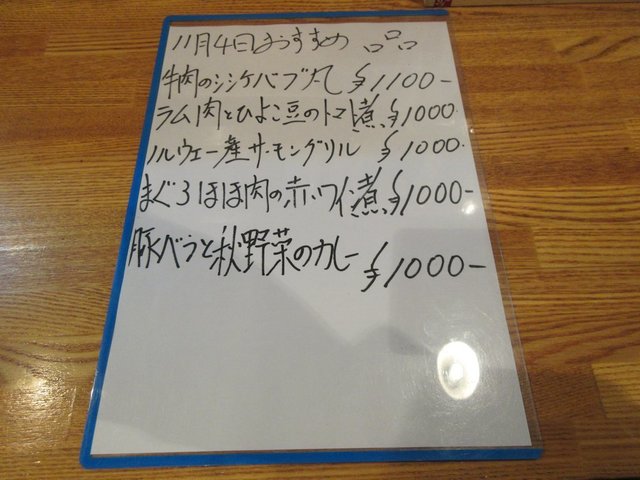 11月4日おすすめ 品
牛肉のシシケバブ ¥1100-
ラム肉とひよこ豆のトマト煮 ¥1000.
ノルウェー産サーモングリル ¥1000.
まぐろほほ肉の赤ワイン煮 ¥1000-
豚バラと秋野菜のカレー ¥1000-